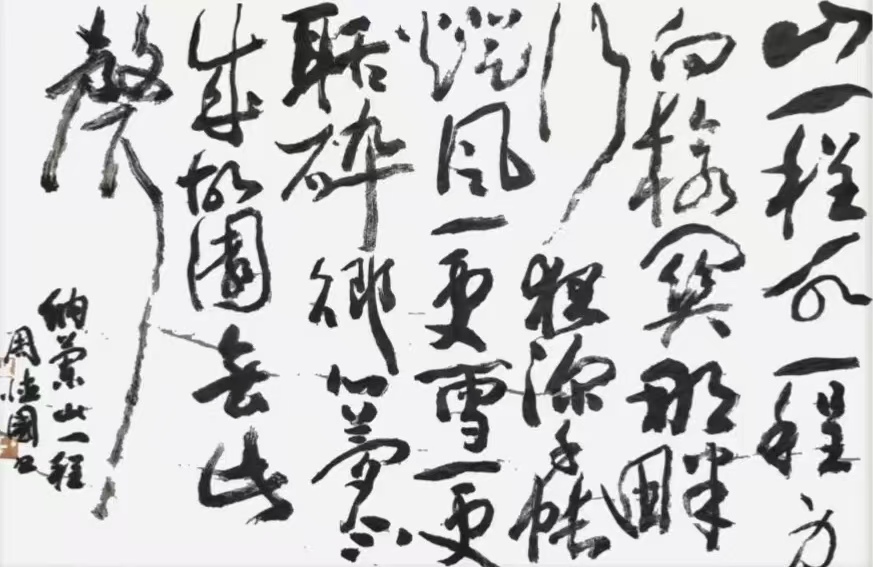 山一程水一程身
向榆関那畔
行夜深千帳
燈風一更雪一更
聒碎鄉心夢不
成故園無此
聲
納蘭山一程
周德國